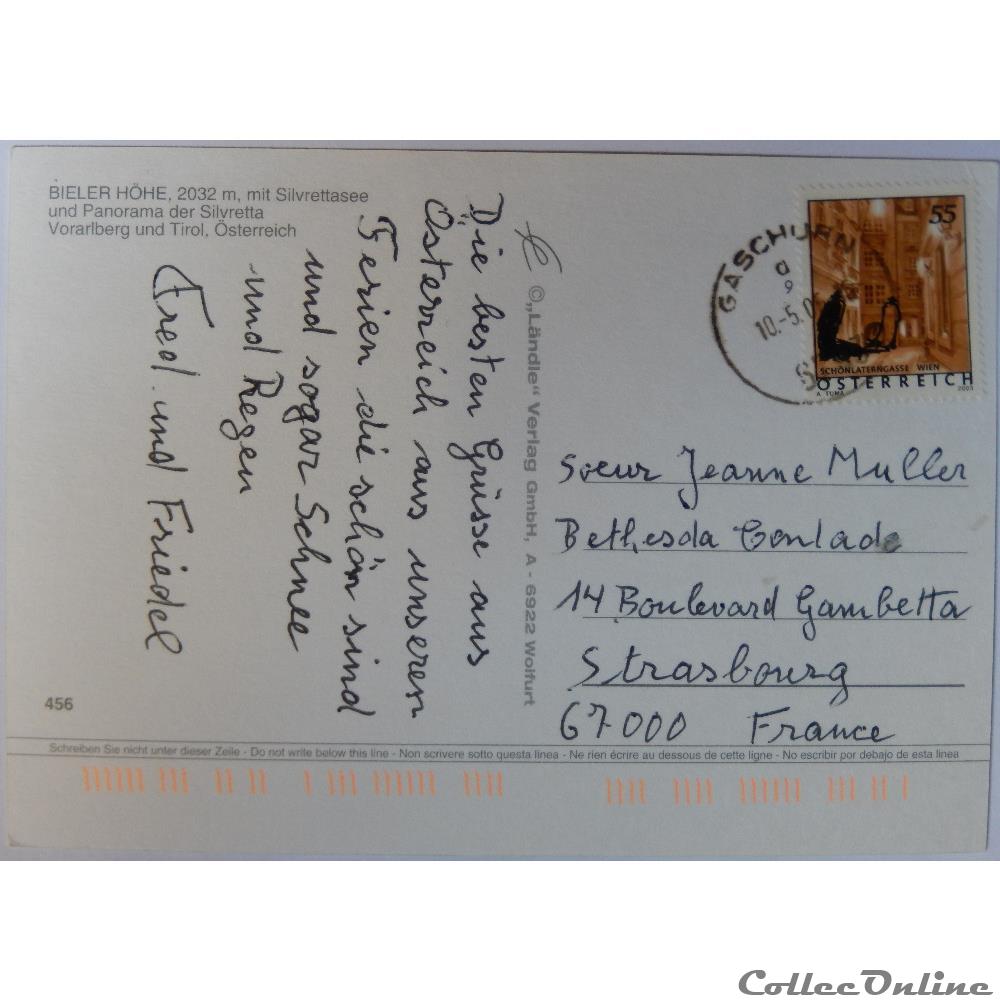 BIELER HÖHE, 2032 m, mit Silvrettasee
und Panorama der Silvretta
Vorarlberg und Tirol, Österreich
Die besten Grüsse aus
Österreich aus unseren
Ferien die schön sind
und sogar Schnee
und Regen
Fred und Friedel
456
© „Ländle" Verlag GmbH, A - 6922 Wolfurt
GASCHURN
a
9
10.-5.0
55
SCHÖNLATERNGASSE WIEN
ÖSTERREICH
A. TUMA 2003
Soeur Jeanne Muller
Bethesda Contade
14 Boulevard Gambetta
Strasbourg
67000 France
Schreiben Sie nicht unter dieser Zeile - Do not write below this line - Non scrivere sotto questa linea - Ne rien écrire au dessous de cette ligne - No escribir por debajo de esta linea
CollecOnline